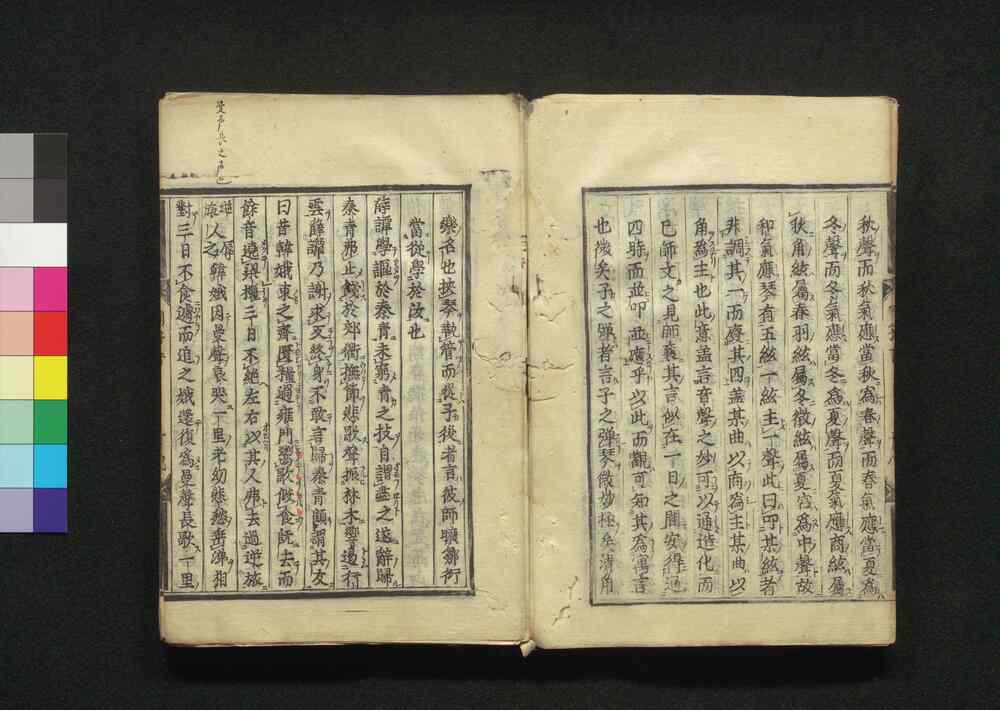 秋聲而秋氣應當秋為春聲而春氣應當夏為
冬聲而冬氣應當冬為夏聲而夏氣應商絃屬
秋角絃屬春羽絃屬冬徵絃屬夏宮為中聲故
和氣應琴有五絃一絃主一聲此曰叩某絃者
非調其一而廢其四蓋某曲以商為主某曲以
角為主也此意蓋言音聲之妙可以通造化而
已師文之見師襄其言似在一日之間安得通
四時而並叩並應乎以此而觀可知其為寓言
也微矣子之彈者言子之彈琴微妙極矣清角
樂名也挾琴執管而從子後者言彼師曠鄒衍
當從學於汝也
薛譚學謳於秦青未窮青之技自謂盡之遂辭歸
秦青弗止餞於郊衢撫節悲歌聲振林木響遏行
雲薛譚乃謝求反終身不敢言歸秦青顧謂其友
曰昔韓娥東之齊匱糧過雍門鬻歌假食既去而
餘音遶梁欐三日不絕左右以其人弗去過逆旅
曼声長之声也
人辱之韓娥因曼聲哀哭一里老幼悲愁垂涕相
對三日不食遽而追之娥還復為曼聲長歌一里